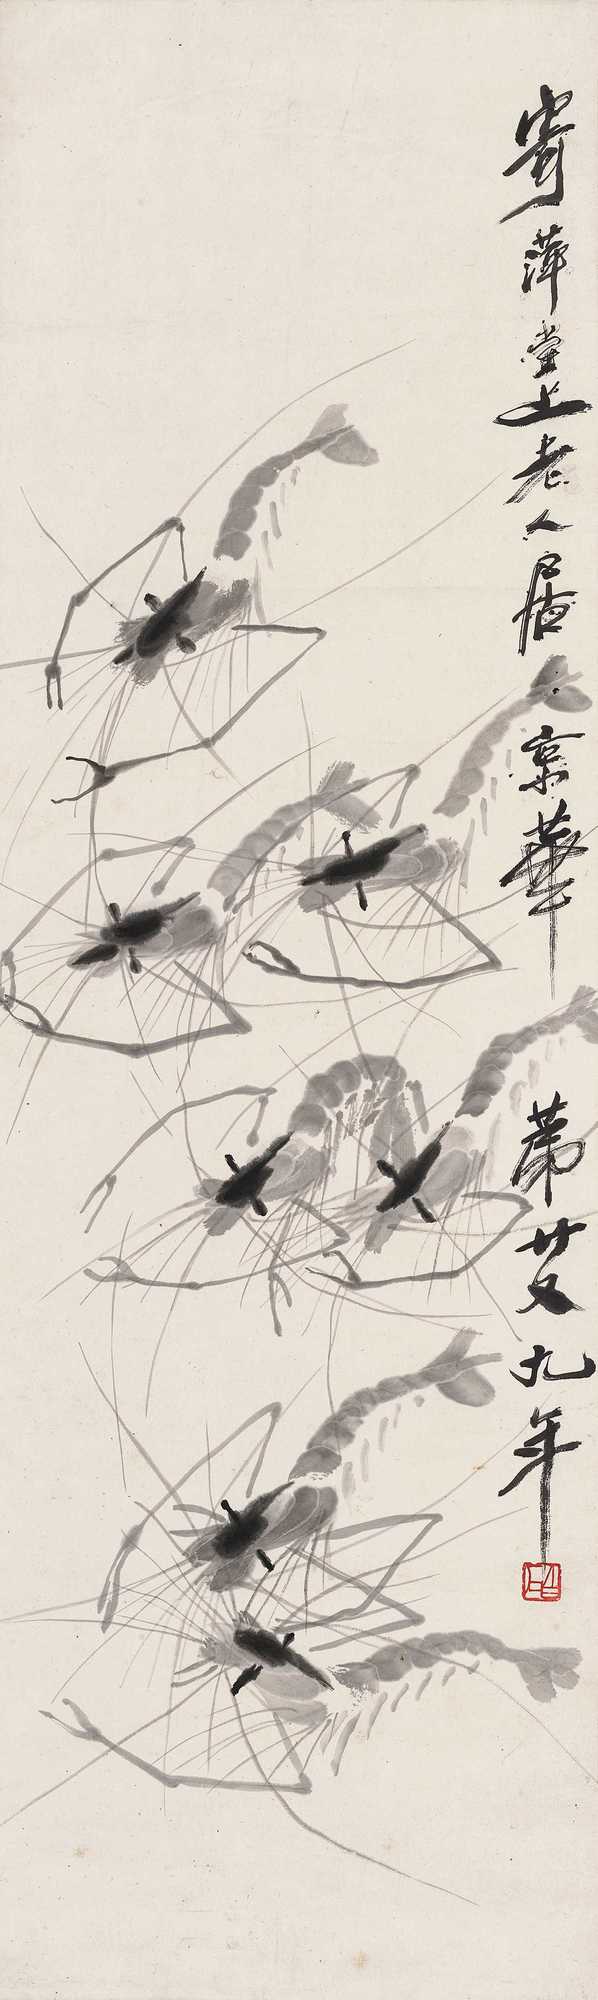 寄萍堂上老人居京華第廿又九年